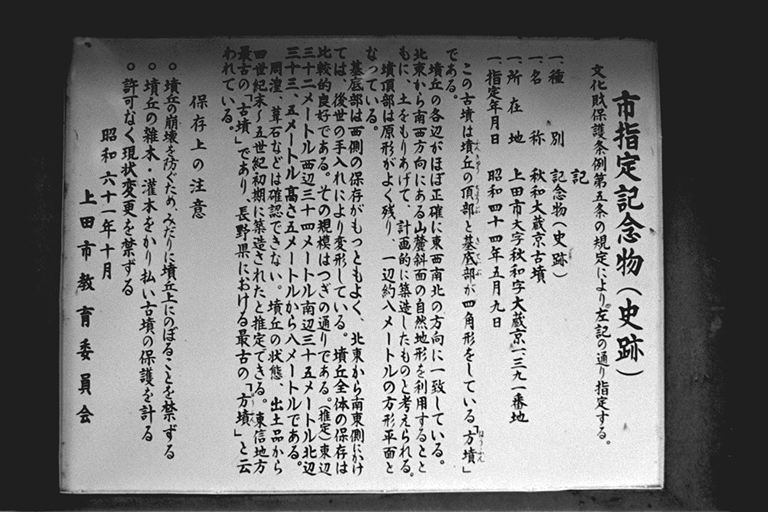 市指定記念物（史跡）
文化財保護条例第五条の規定により左記の通り指定する。
記
一、種　別　記念物（史跡）
一、名　称　秋和大蔵京古墳
一、所在地　上田市大字秋和字大蔵京一三九一番地
一、指定年月日　昭和四十四年五月九日
この古墳は墳丘の頂部と墓底部が四角形をしている「方墳」
である。
墳丘の各辺がほぼ正確に東西南北の方向に一致している。
北東から南西方向にある山麓斜面の自然地形を利用するとと
もに、土をもりあげて、計画的に築造したものと考えられる。
墳頂部は原形がよく残り、一辺約八メートルの方形平面と
なっている。
墓底部は西側の保存がもっともよく、北東から南東側にかけ
ては、後世の手入れにより変形している。墳丘全体の保存は
比較的良好である。その規模はつぎの通りである。（推定）東辺
三十二メートル西辺三十四メートル南辺三十五メートル北辺
三十三・五メートル高さ五メートルから八メートルである。
周湟、葺石などは確認できない。墳丘の状態、出土品から
四世紀末～五世紀初期に築造されたと推定できる。東信地方
最古の「古墳」であり、長野県における最古の「方墳」と云
われている。
保存上の注意
○墳丘の崩壊を防ぐため、みだりに墳丘上にのぼることを禁ずる
○墳丘の雑木・灌木をかり払い古墳の保護を計る
○許可なく現状変更を禁ずる
昭和六十一年十月
上田市教育委員会